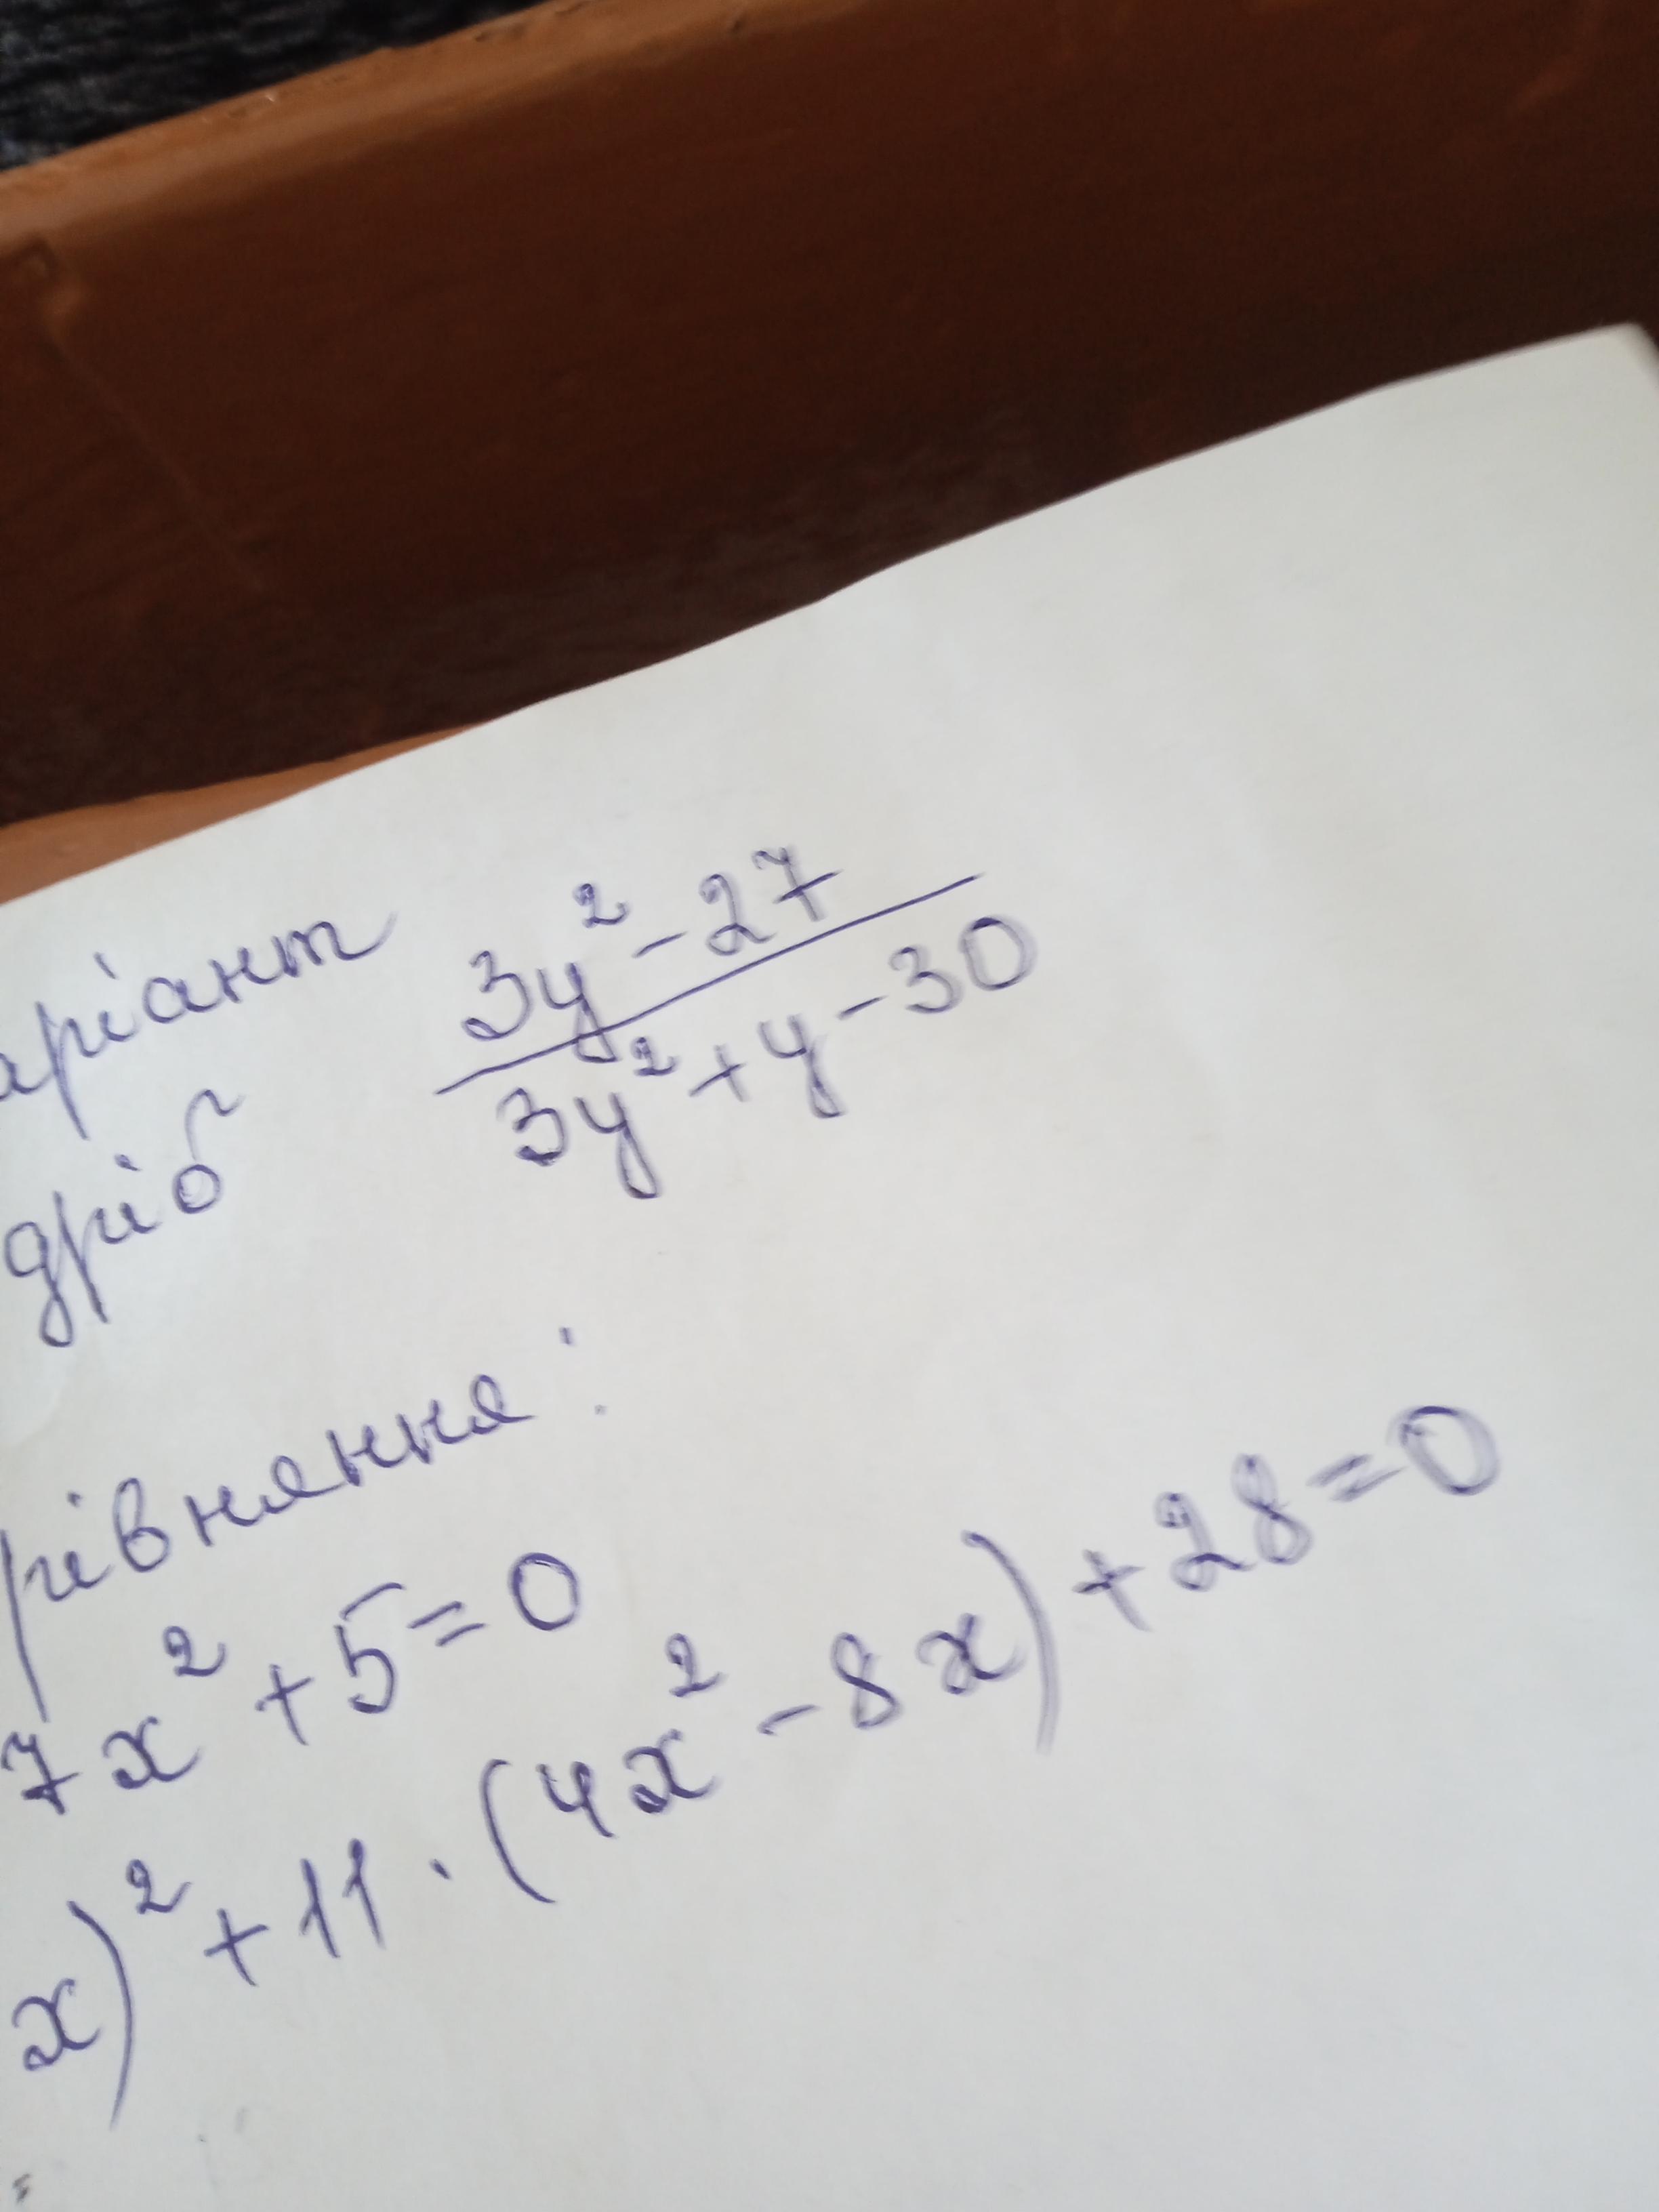 аріант
дріб 3y² - 27 / 3y² + y - 30
рівняння:
7x² + 5 = 0
x)² + 11 · (4x² - 8x) + 28 = 0
=